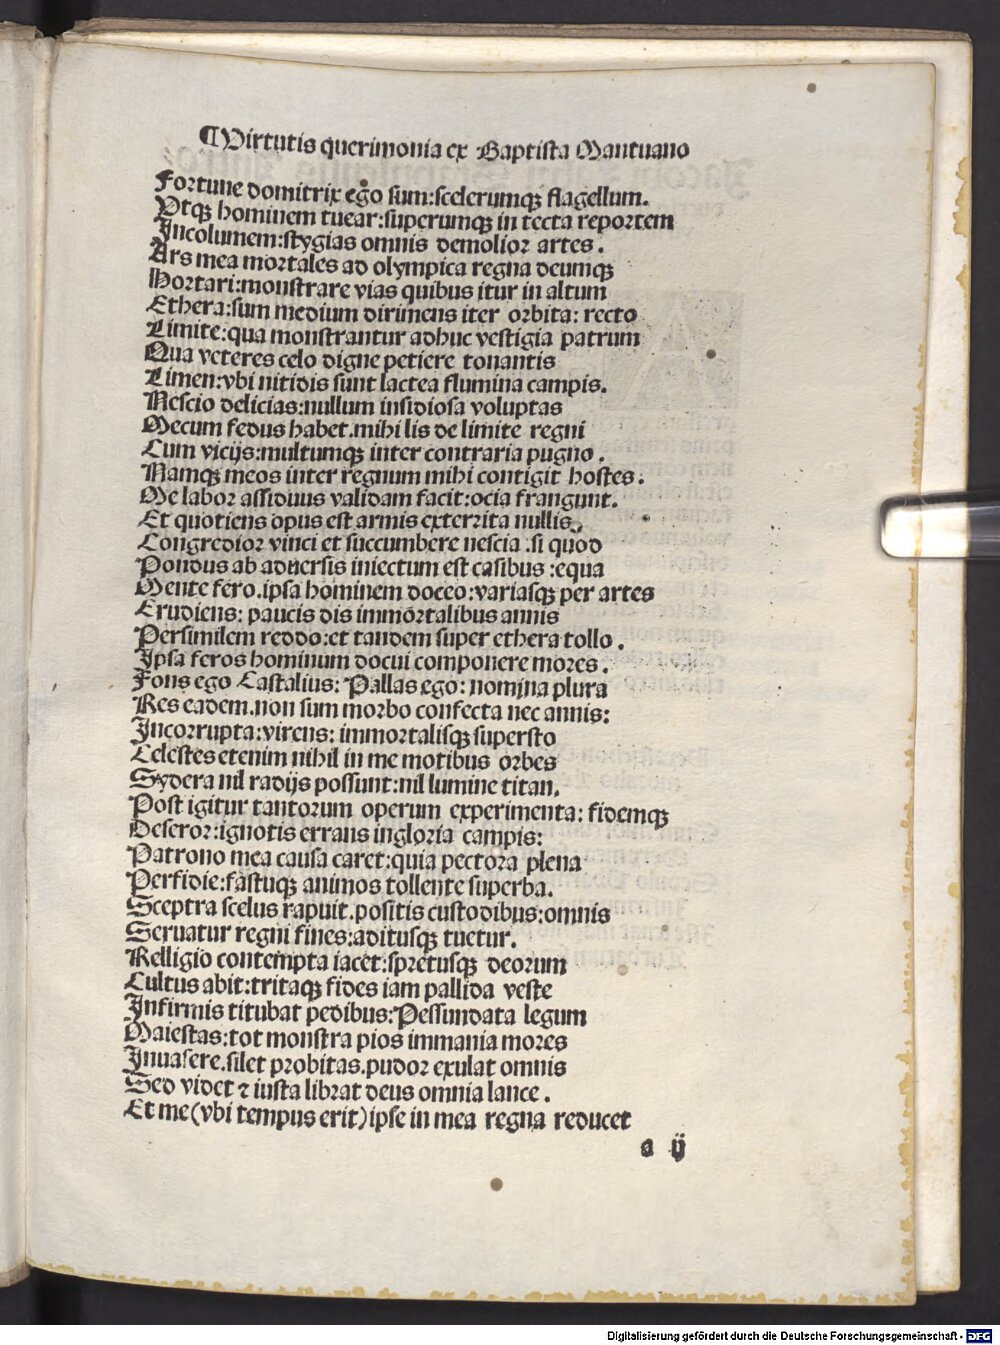 ¶Virtutis querimonia ex Baptista Mantuano
Fortune domitrix ego sum:scelerumqꝫ flagellum.
Vtqꝫ hominem tuear:superumqꝫ in tecta reportem
Incolumem:stygias omnis demolior artes.
Ars mea mortales ad olympica regna deumqꝫ
Hortari:monstrare vias quibus itur in altum
Ethera:sum medium dirimens iter orbita: recto
Limite:qua monstrantur adhuc vestigia patrum
Qua veteres celo digne petiere tonantis
Limen:vbi nitidis sunt lactea flumina campis.
Nescio delicias:nullum insidiosa voluptas
Mecum fedus habet.mihi lis de limite regni
Cum vicijs:multumqꝫ inter contraria pugno.
Namqꝫ meos inter regnum mihi contigit hostes.
Me labor assiduus validam facit:ocia frangunt.
Et quotiens opus est armis exterrita nullis
Congredior vinci et succumbere nescia.si quod
Pondus ab aduersis iniectum est casibus:equa
Mente fero.ipsa hominem doceo:variasqꝫ per artes
Erudiens: paucis dis immortalibus annis
Persimilem reddo:et tandem super ethera tollo.
Ipsa feros hominum docui componere mores.
Fons ego Castalius: Pallas ego: nomina plura
Res eadem.non sum morbo confecta nec annis:
Incorrupta:virens: immortalisqꝫ supersto
Celestes etenim nihil in me motibus orbes
Sydera nil radijs possunt:nil lumine titan.
Post igitur tantorum operum experimenta: fidemqꝫ
Deseror:ignotis errans ingloria campis:
Patrono mea causa caret:quia pectora plena
Perfidie:fastuqꝫ animos tollente superba.
Sceptra scelus rapuit.positis custodibus:omnis
Seruatur regni fines:aditusqꝫ tuetur.
Relligio contempta iacet:spretusqꝫ deorum
Cultus abit:tritaqꝫ fides iam pallida veste
Infirmis titubat pedibus:Pessundata legum
Maiestas:tot monstra pios immania mores
Inuasere.silet probitas.pudor exulat omnis
Sed videt ⁊ iusta librat deus omnia lance.
Et me(vbi tempus erit)ipse in mea regna reducet
a ij
Digitalisierung gefördert durch die Deutsche Forschungsgemeinschaft - DFG